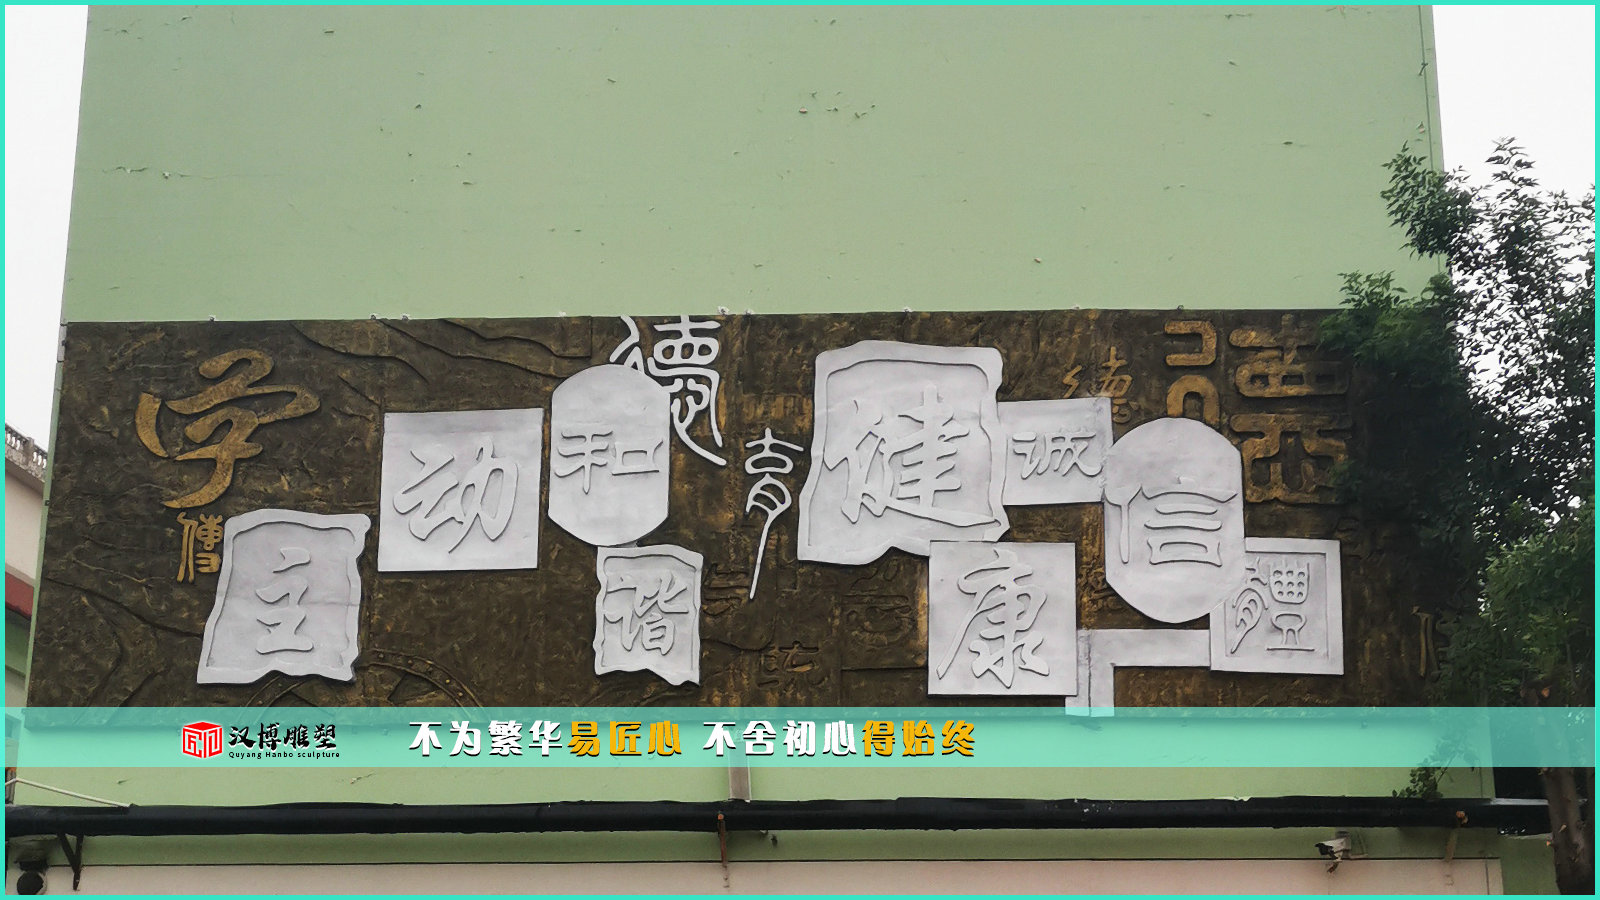 学
傳
主
动
和
谐
德
育
健
康
诚
信
體
德
汉博雕塑
Quyang Hanbo sculpture
不为繁华易匠心 不舍初心得始终